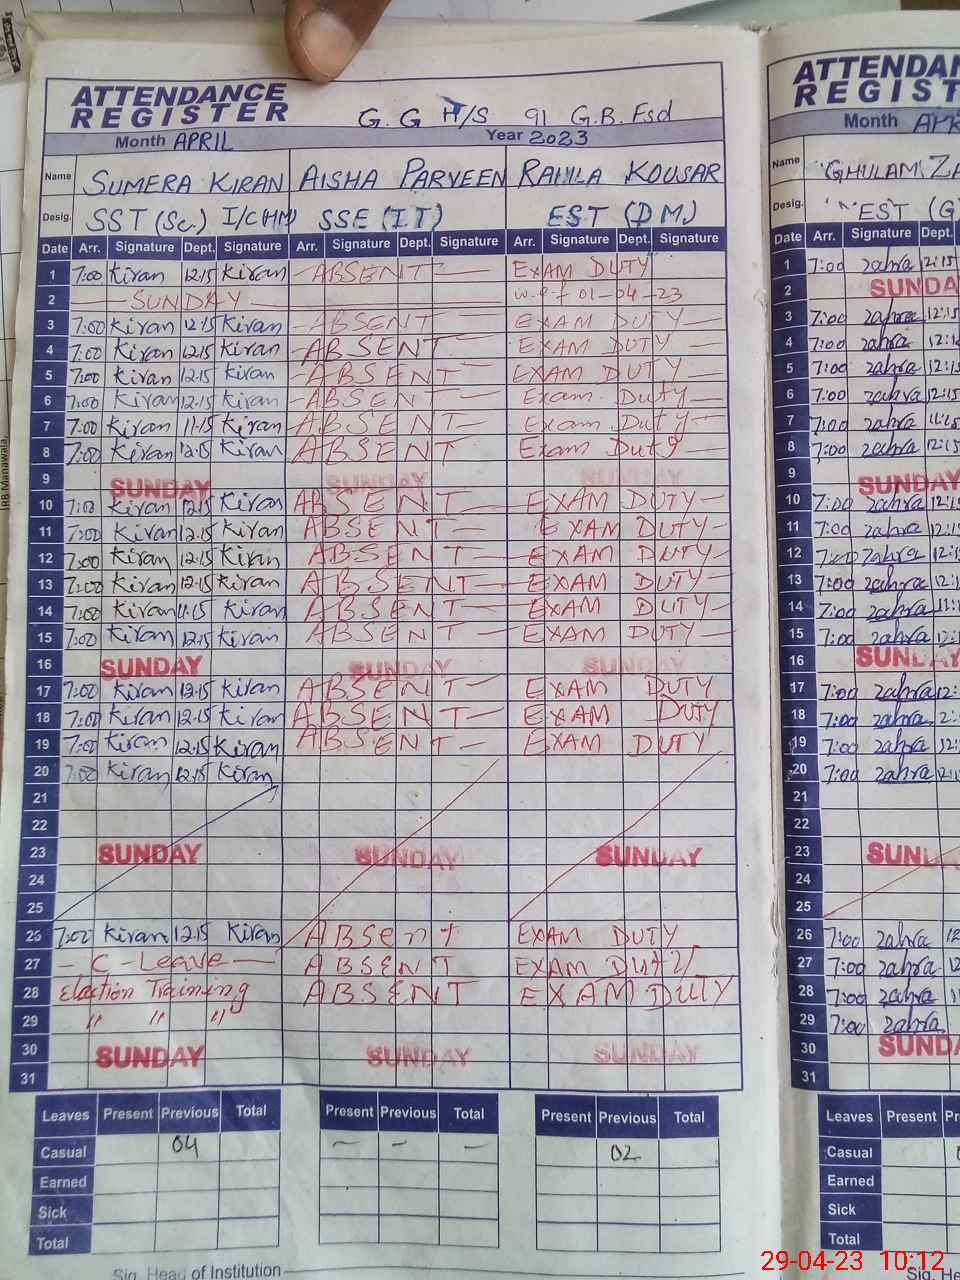 ATTENDANCE
REGISTER G.G H/S 91 G.B. Fsd
Month APRIL Year 2023
Name SUMERA KIRAN AISHA PARVEEN RAHLA KOUSAR
Desig. SST (Sc.) I/CHM SSE (IT) EST (DM)
Date Arr. Signature Dept. Signature Arr. Signature Dept. Signature Arr. Signature Dept. Signature
1 7:00 Kiran 12:15 Kiran ABSENT EXAM DUTY
2 SUNDAY w.e.f 01-04-23
3 7:00 Kiran 12:15 Kiran ABSENT EXAM DUTY
4 7:00 Kiran 12:15 Kiran ABSENT EXAM DUTY
5 7:00 Kiran 12:15 Kiran ABSENT EXAM DUTY
6 7:00 Kiran 12:15 Kiran ABSENT Exam Duty
7 7:00 Kiran 11:15 Kiran ABSENT Exam Duty
8 7:00 Kiran 12:15 Kiran ABSENT Exam Duty
9 SUNDAY SUNDAY SUNDAY
10 7:00 Kiran 12:15 Kiran ABSENT EXAM DUTY
11 7:00 Kiran 12:15 Kiran ABSENT EXAM DUTY
12 7:00 Kiran 12:15 Kiran ABSENT EXAM DUTY
13 7:00 Kiran 12:15 Kiran ABSENT EXAM DUTY
14 7:00 Kiran 11:15 Kiran ABSENT EXAM DUTY
15 7:00 Kiran 12:15 Kiran ABSENT EXAM DUTY
16 SUNDAY SUNDAY SUNDAY
17 7:00 Kiran 12:15 Kiran ABSENT EXAM DUTY
18 7:00 Kiran 12:15 Kiran ABSENT EXAM DUTY
19 7:00 Kiran 12:15 Kiran ABSENT EXAM DUTY
20 7:00 Kiran 12:15 Kiran
21
22
23 SUNDAY SUNDAY SUNDAY
24
25
26 7:00 Kiran 12:15 Kiran ABSENT EXAM DUTY
27 - C - Leave - ABSENT EXAM DUTY
28 Election Training ABSENT EXAM DUTY
29 " " "
30 SUNDAY SUNDAY SUNDAY
31
Leaves Present Previous Total Present Previous Total Present Previous Total
Casual 04 - - - 02
Earned
Sick
Total
Sig. Head of Institution
ATTENDAN
REGIST
Month APR
Name GHULAM ZA
Desig. EST (G
Date Arr. Signature Dept.
1 7:00 Zahra 12:15
2 SUNDA
3 7:00 Zahra 12:15
4 7:00 Zahra 12:1
5 7:00 Zahra 12:15
6 7:00 Zahra 12:15
7 7:00 Zahra 11:15
8 7:00 Zahra 12:15
9 SUNDAY
10 7:00 Zahra 12:1
11 7:00 Zahra 12:15
12 7:00 Zahra 12:1
13 7:00 Zahra 12:1
14 7:00 Zahra 11:
15 7:00 Zahra 12:1
16 SUNDAY
17 7:00 Zahra 12:
18 7:00 Zahra 2:
19 7:00 Zahra 12:
20 7:00 Zahra 12:1
21
22
23 SUNDA
24
25
26 7:00 Zahra 12
27 7:00 Zahra 12
28 7:00 Zahra
29 7:00 Zahra
30 SUNDA
31
Leaves Present Pr
Casual
Earned
Sick
Total
Sig. He
IRB Manawala,
29-04-23 10:12